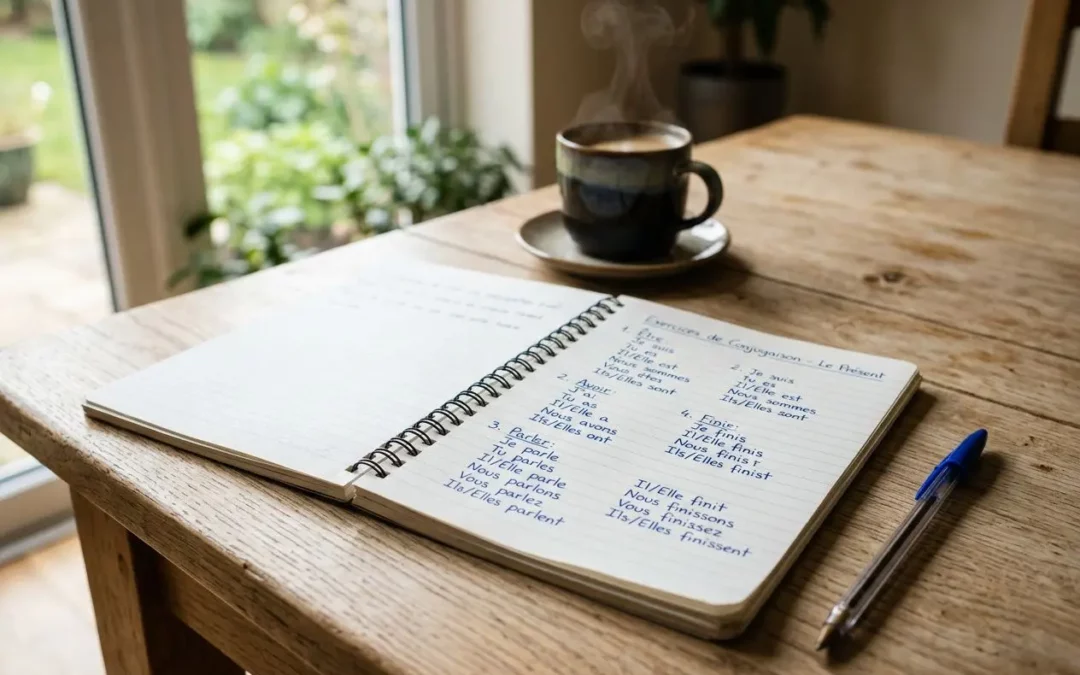 Exercices de Conjugaison - Le Présent
1. Être:
Je suis
Tu es
Il/Elle est
Nous sommes
Vous êtes
Ils/Elles sont
2. Avoir:
J'ai
Tu as
Il/Elle a
Nous avons
Ils/Elles ont
3. Parler:
Je parle
Tu parles
Il/Elle parle
Nous parlons
Vous parlez
Ils/Elles parlent
2. Je suis
Tu es
Il/Elle est
Nous sommes
Ils/Elles sont
4. Finir:
Je finis
Il/Elle finis
Nous finis
Ils/Elles finist
Il/Elle finit
Nous finissons
Vous finissez
Ils/Elles finissent